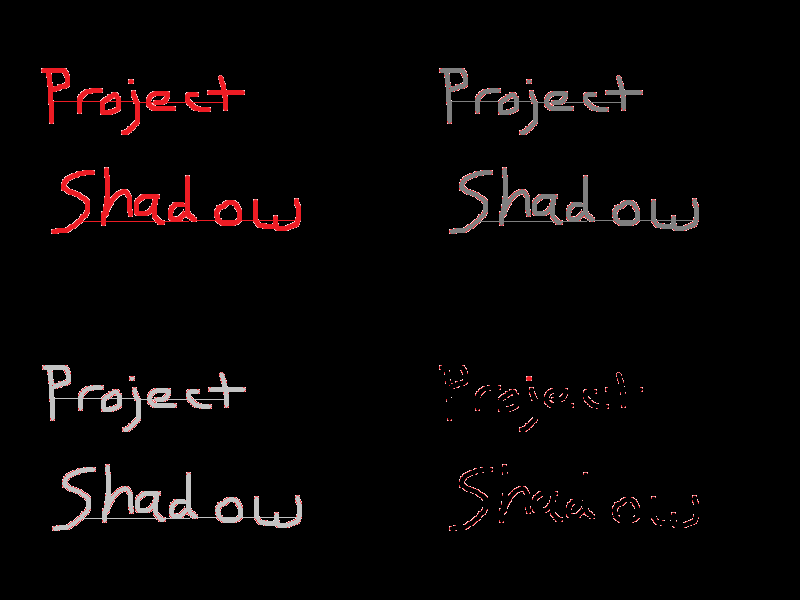 Project
Shadow
Project
Shadow
Project
Shadow
Project
Shadow